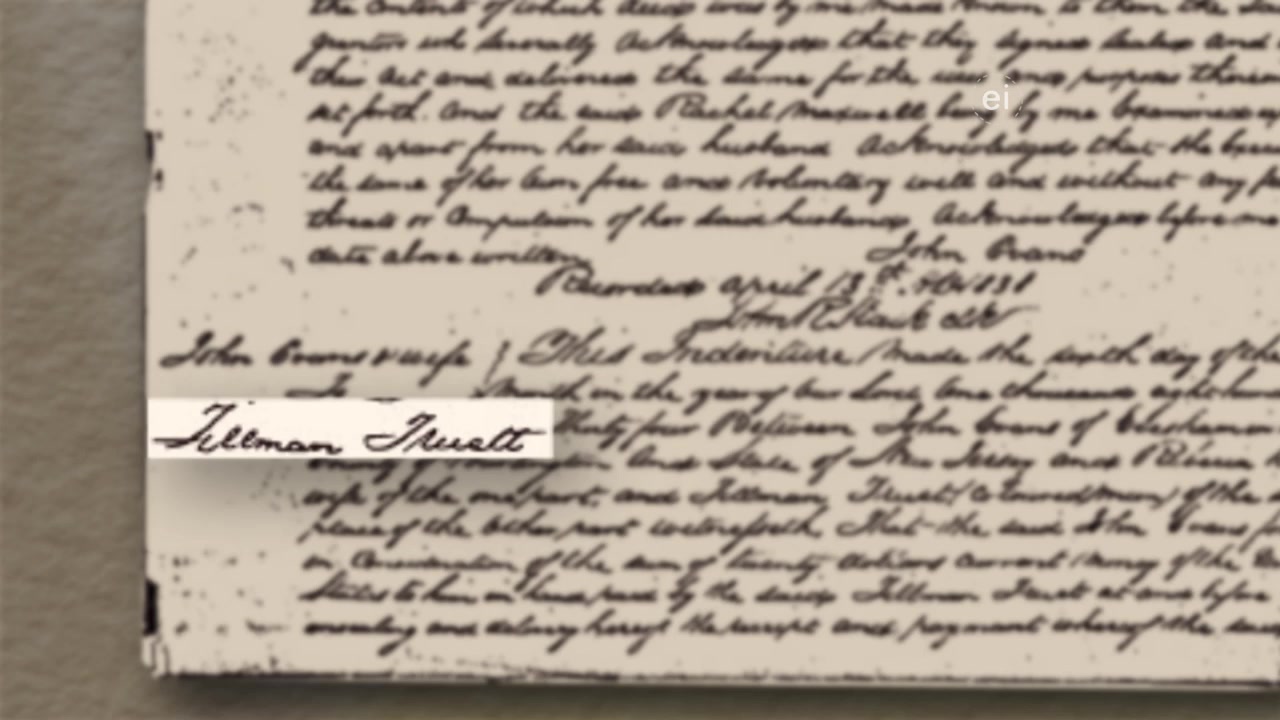 the contents of which deed was by me made known to them the
grantors who severally acknowledges that they signed sealed and
their act and delivered the same for the uses and purposes therein
ei
set forth. And the said Rachel Maxwell being by me examined
and apart from her said husband acknowledged that she
the same of her own free and voluntary will and without any
threats or compulsion of her said husband, acknowledges before me
date above written
John Evans
Recorded April 13th. AD 1831
John Evans & wife } This Indenture made the sixth day of the
To Month in the year of our Lord One thousand eight
Tillman Truett
Thirty four Between John Evans of Evesham
County of Burlington and State of New Jersey and
wife of the one part, and Tillman Truett (coloured man) of the
place of the other part witnesseth, That the said John Evans
in Consideration of the sum of twenty dollars current money of the
States to him in hand paid by the said Tillman Truett at and before
ensealing and delivery hereof the receipt and payment whereof the